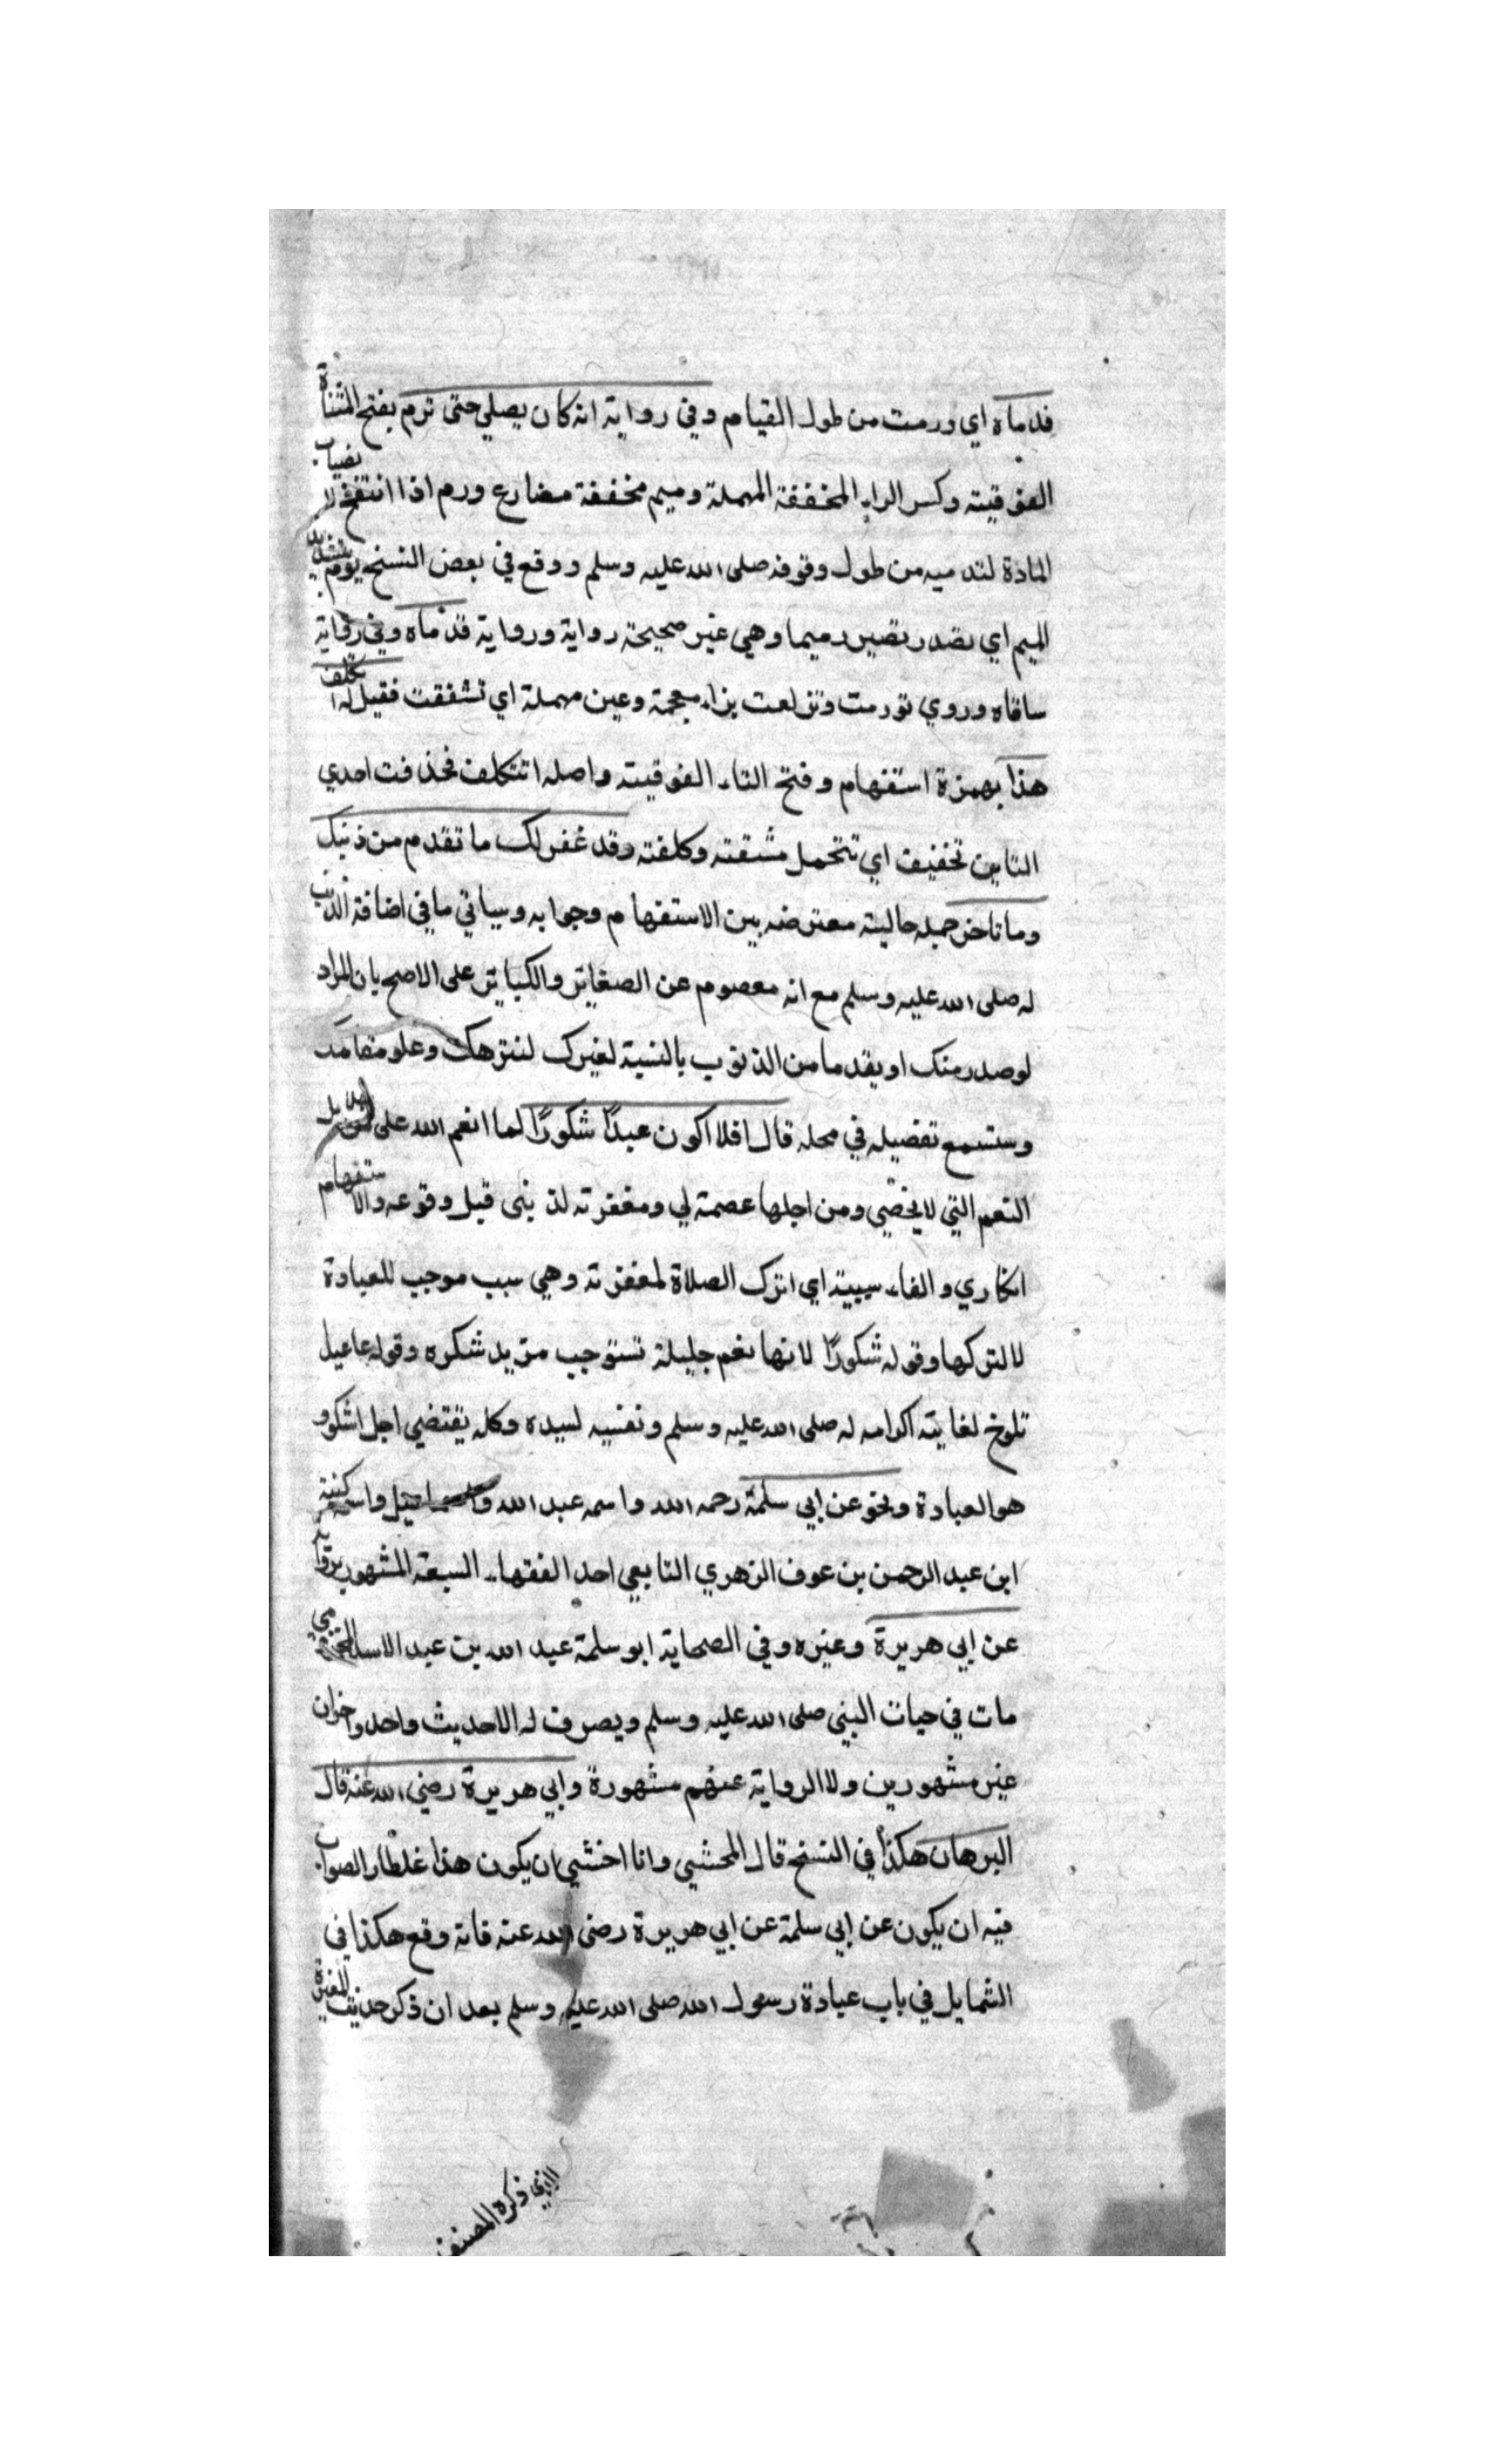 قدماه اي ورمت من طول القيام وفي رواية انه كان يصلي حتى ترم بفتح المثناة
الفوقيته وكسر الراء المخففة المهملة وميم مخففة مضارع ورم اذا انتفخ لانصباب
المادة لقدميه من طول وقوفه صلى الله عليه وسلم ووقع في بعض النسخ يوم بتشديد
الميم اي تصير رميما وهي غير صحيحة رواية ورواية قدماه وفي رواية
ساقاه وروي تورمت وتزلعت بزاء معجمة وعين مهملة اي تشققت فقيل له اتكلف
هذا بهمزة استفهام وفتح التاء الفوقيته واصله اتتكلف فحذفت احدي
التاين تخفيف اي تتحمل مشقته وكلفته وقد غفر لك ما تقدم من ذنبك
وما تاخر جمله حاليته معترضه بين الاستفهام وجوابه وسياتي ما في اضافة الذنب
له صلى الله عليه وسلم مع انه معصوم عن الصغاير والكباير على الاصح بان المراد
لوصدر منك او يقد ما من الذنوب بالنسبة لغيرك لنتزهك وعلو مقامك
وستسمع تفصيله في محله قال افلا اكون عبدًا شكورًا لما انعم الله على من
النعم التي لا يحصي ومن اجلها عصمة لي ومغفرته لذنبي قبل وقوعه والاستفهام
انكاري والفاء سببية اي اترك الصلاة لمغفرته وهي سبب موجب للعبادة
لا لتركها وقوله شكورًا لانها نعم جليلة تستوجب مزيد شكره وقوله عبدا
تلوح لغايته اكرامه له صلى الله عليه وسلم ونفسه لسيده وكله يقتضي اجل الشكر و
هو العبادة ونحو عن ابي سلمة رحمه الله واسمه عبد الله واسمه كنيته
ابن عبد الرحمن بن عوف الزهري التابعي احد الفقهاء السبعة المشهور
عن ابي هريرة وغيره وفي الصحابة ابو سلمة عبد الله بن عبد الاسد المخزومي
مات في حيات النبي صلى الله عليه وسلم ويصرف له الاحديث واحد واخران
غير مشهورين ولا الرواية عنهم مشهورة وابي هريرة رضي الله عنه قال
البرهان هكذا في النسخ قال المحشي وانا اخشي ان يكون هذا غلطا والصواب
فيه ان يكون عن ابي سلمة عن ابي هريرة رضي الله عنه فانه وقع هكذا في
الشمايل في باب عبادة رسول الله صلى الله عليه وسلم بعد ان ذكر حديث المغيرة
الذي ذكره المصنف